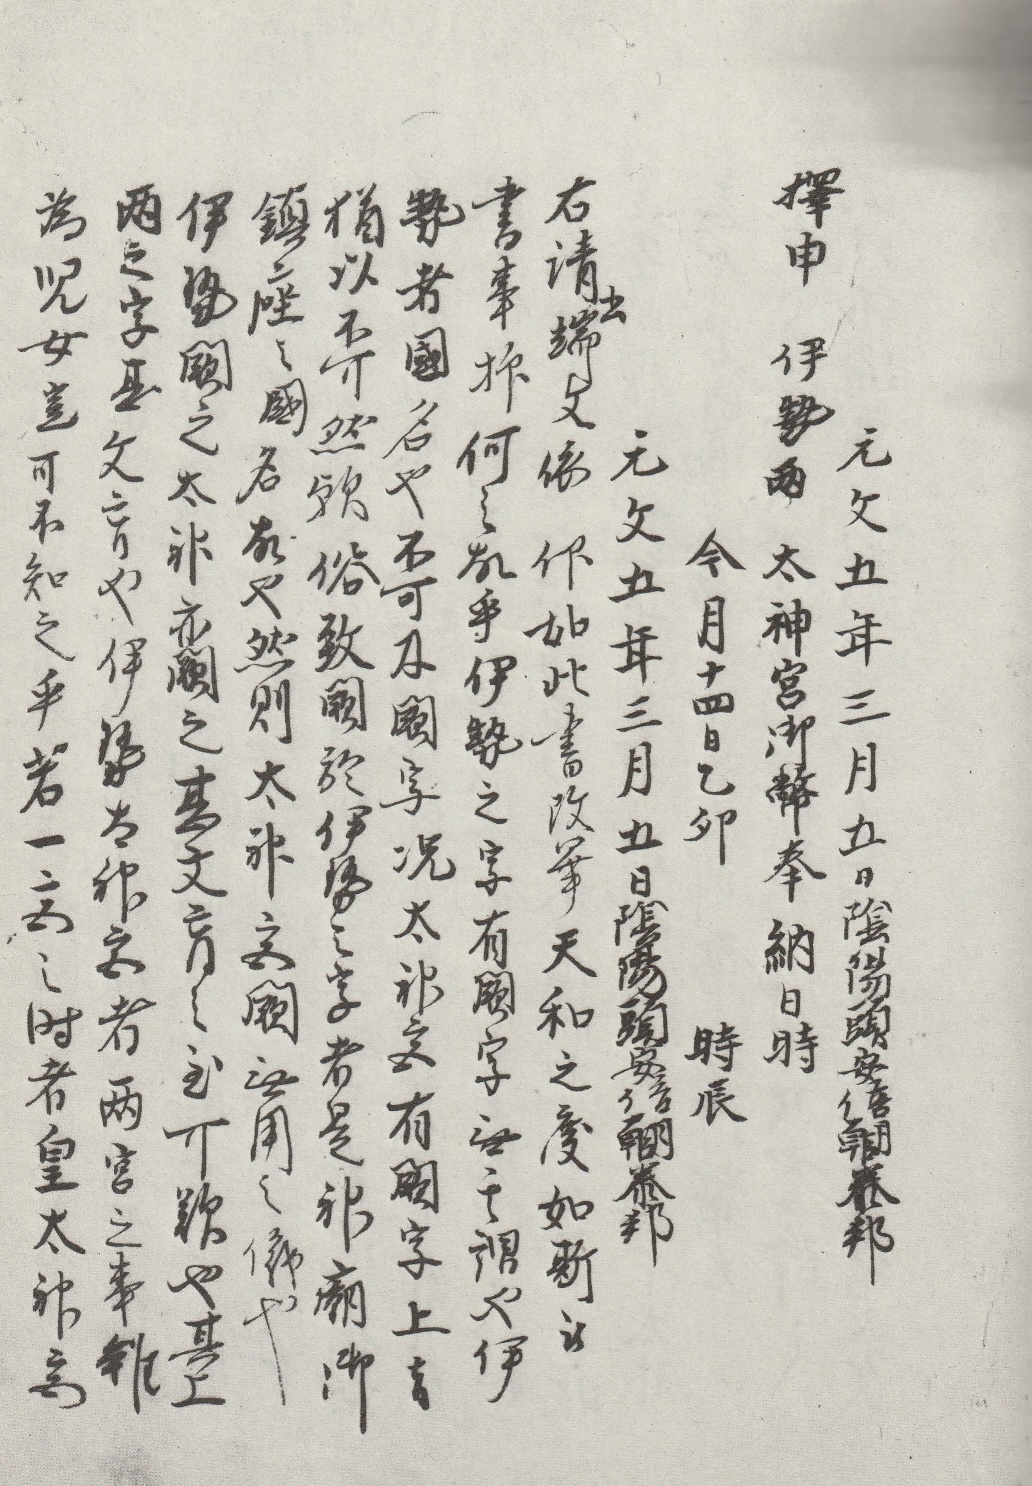 元文五年三月五日陰陽頭安倍朝臣泰邦
擇申 伊勢両 太神宮御幣奉納日時
今月十四日乙卯 時辰
元文五年三月五日陰陽頭安倍朝臣泰邦
右請端出文依 仰如此書改畢天和之度如斯
書事抑何之故乎伊勢之字有闕字無其謂也伊
勢者國名也不可及闕字況太神宮有闕字上者
猶以不可然歟俗致闕於伊勢之字者是神廟御
鎮座之國名故也然則太神宮闕無用之儀也
伊勢闕之太神亦闕之甚文盲之至可歎也其上
両之字甚文盲也伊勢太神宮者両宮之事雖
為児女豈可不知之乎若一宮之時者皇太神宮